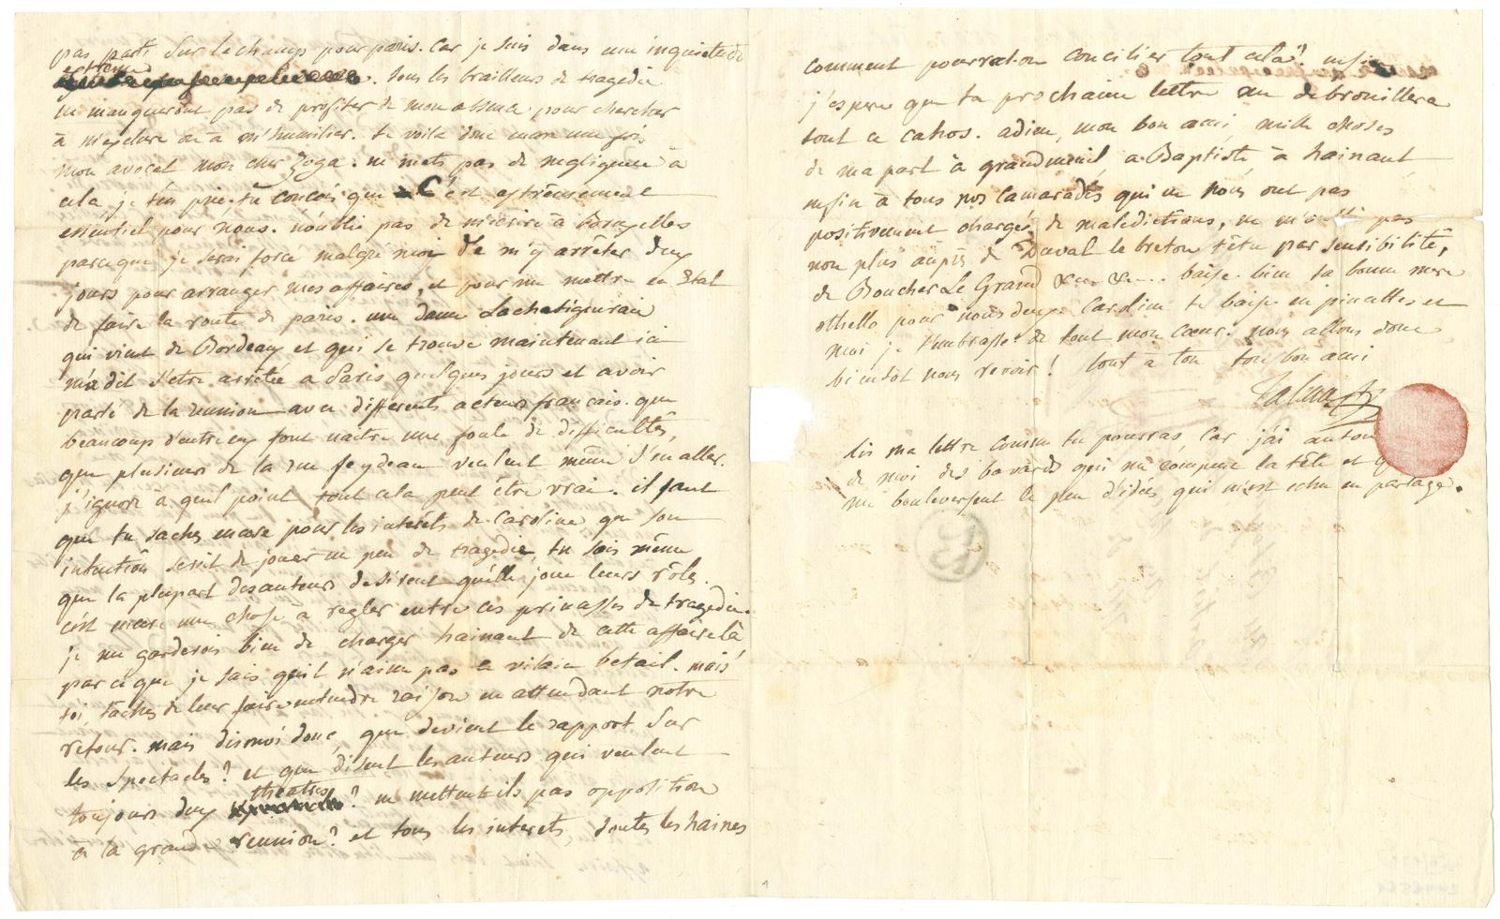 pas parti sur le champ pour paris. car je suis dans une inquietude
extreme. tous les brailleurs de tragedie
ne manqueront pas de profiter de mon absence pour chercher
à m'exclure ou à m'humilier. te voila donc encore une fois
mon avocat mon cher Zoga. ne mets pas de negligence à
cela je t'en prie. tu conçois que C'est extrêmement
essentiel pour nous. n'oublie pas de m'ecrire à Bruxelles
parceque je serai forcé malgré moi de m'y arrêter deux
jours pour arranger mes affaires, et pour me mettre en Etat
de faire la route de paris. une dame Lachataigneraie
qui vient de Bordeaux et qui se trouve maintenant ici
m'a dit s'etre arrêtée a Paris quelques jours et avoir
parlé de la reunion avec differents acteurs français. que
beaucoup d'entre eux font naitre une foule de difficultés,
que plusieurs de la rue feydeau veulent même s'en aller.
j'ignore à quel point tout cela peut être vrai. il faut
que tu saches encore pour les interêts de Caroline que son
intention serait de jouer un peu de tragedie, tu sais même
que la plupart des auteurs desirent qu'elle joue leurs rôles.
c'est encore une chose à regler entre ces princesses de tragedie.
je me garderois bien de charger hainaut de cette affaire là
parceque je sais qu'il n'aime pas ce vilain betail. mais
toi, tâches de leur faire entendre raison en attendant notre
retour. mais dis moi donc que devient le rapport sur
les spectacles? et que disent les auteurs qui veulent
toujours deux théatres? ne mettent ils pas opposition
a la grande reunion? et tous les interets, toutes les haines
comment pourra-t-on concilier tout cela? enfin
j'espere que ta prochaine lettre me debrouillera
tout ce cahos. adieu, mon bon ami, mille choses
de ma part à grandmenil a Baptiste à hainaut
enfin à tous nos camarades qui ne nous ont pas
positivement chargés de maledictions, ne m'oublie pas
non plus auprès de Duval le breton têtu par sensibilité,
de Boucher Le Grand &c. &c... baise bien ta bonne mere
othello pour nous deux. Caroline te baise en pincettes et
moi je t'embrasse de tout mon cœur. nous allons donc
bientot nous revoir! tout a toi ton bon ami
Talma
lis ma lettre comme tu pourras car j'ai autour
de moi des bavards qui me rompent la tête et
me bouleversent le peu d'idées qui m'est echu en partage.